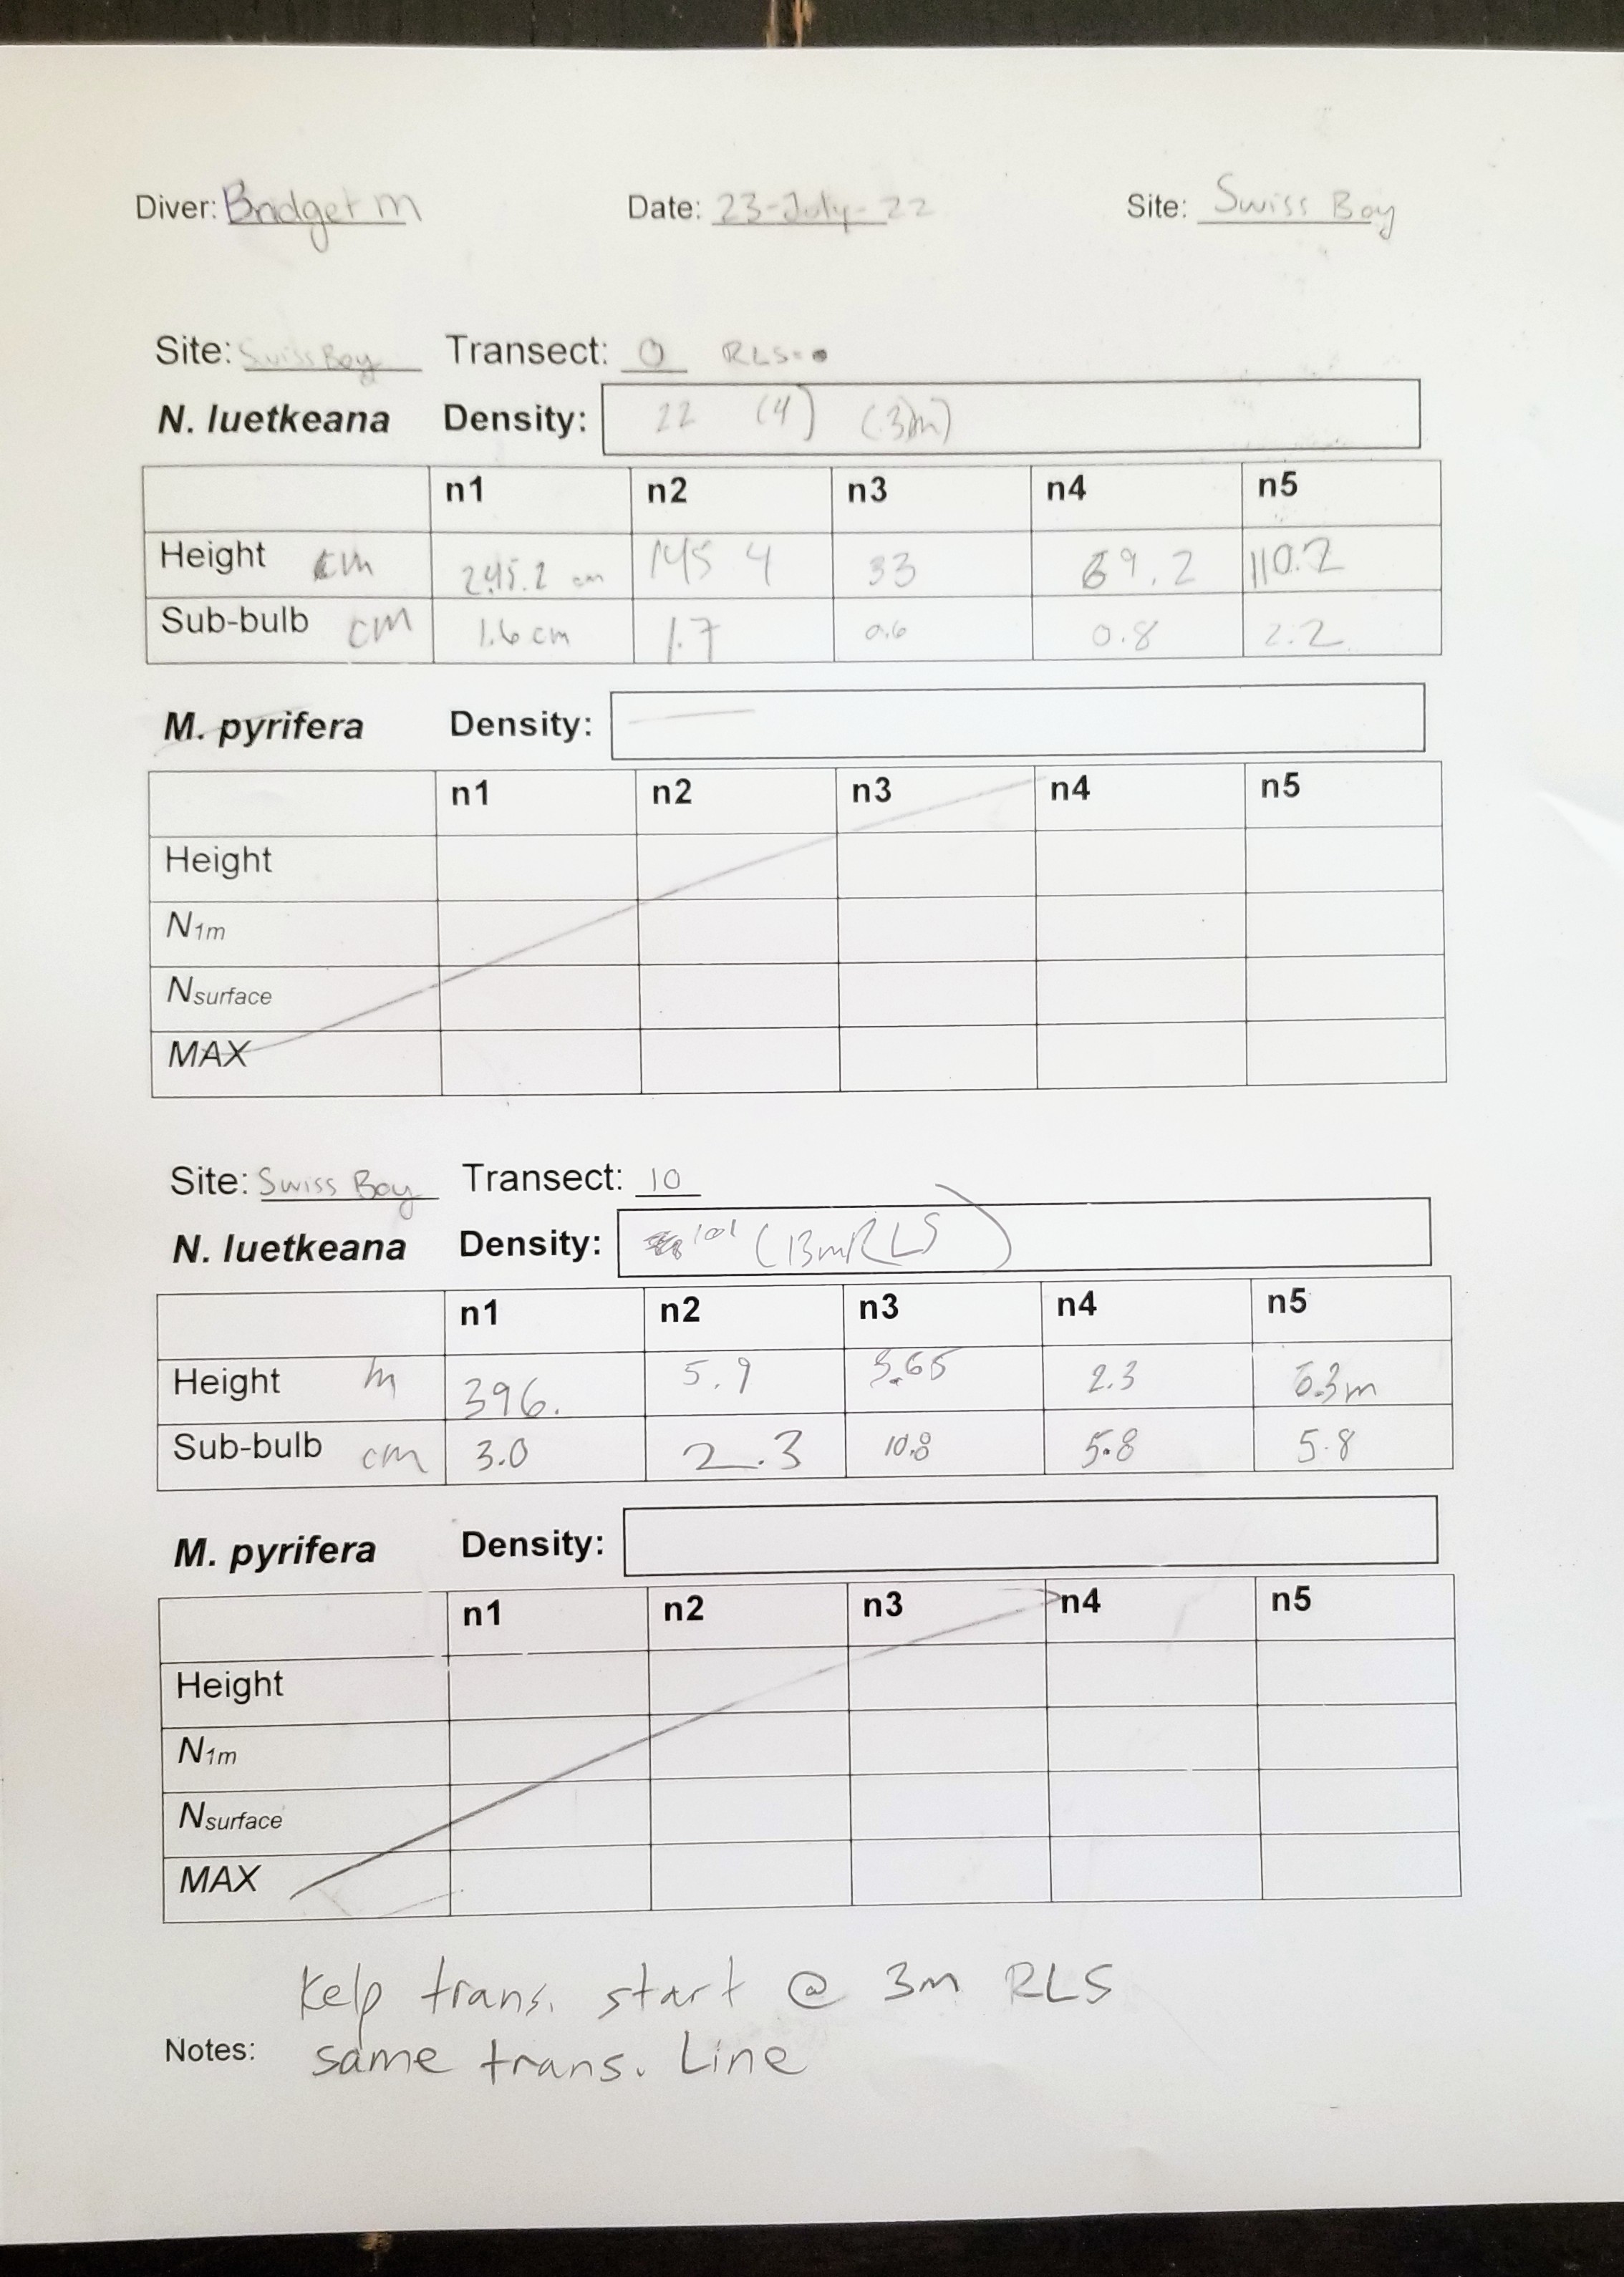 Diver: Bridget M Date: 23-July-22 Site: Swiss Boy
Site: Swiss Boy Transect: 0 RLS
N. luetkeana Density: 22 (4) (3m)
n1 n2 n3 n4 n5
Height cm 245.2 cm 145 4 33 69.2 110.2
Sub-bulb cm 1.6 cm 1.7 0.6 0.8 2.2
M. pyrifera Density: —
n1 n2 n3 n4 n5
Height
N1m
Nsurface
MAX
Site: Swiss Boy Transect: 10
N. luetkeana Density: 101 (13m RLS)
n1 n2 n3 n4 n5
Height m 396. 5.9 2.3
Sub-bulb cm 3.0 2.3 10.8 5.8 5.8
M. pyrifera Density:
n1 n2 n3 n4 n5
Height
N1m
Nsurface
MAX
Kelp trans. start @ 3m RLS
Notes: same trans. Line